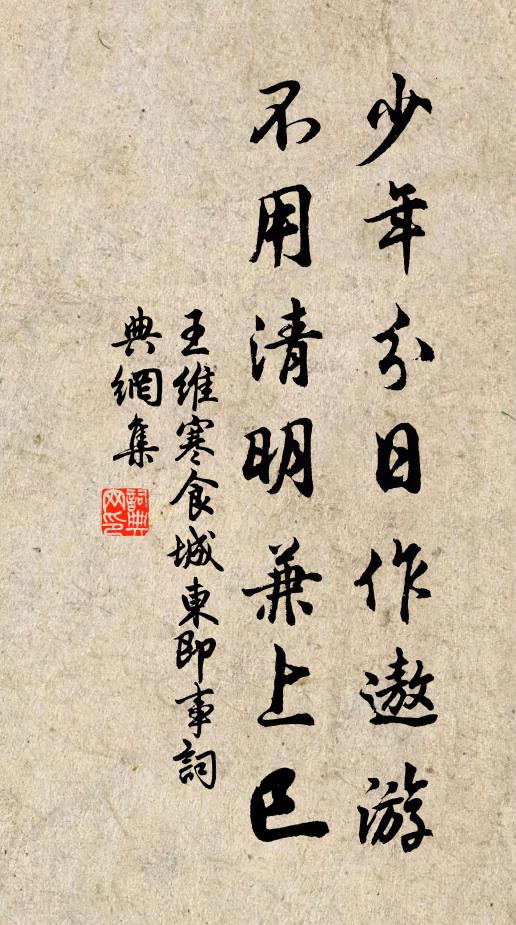 少年分日作遨游
不用清明兼上巳
王維寒食城東即事詞
典網集
詞典網印